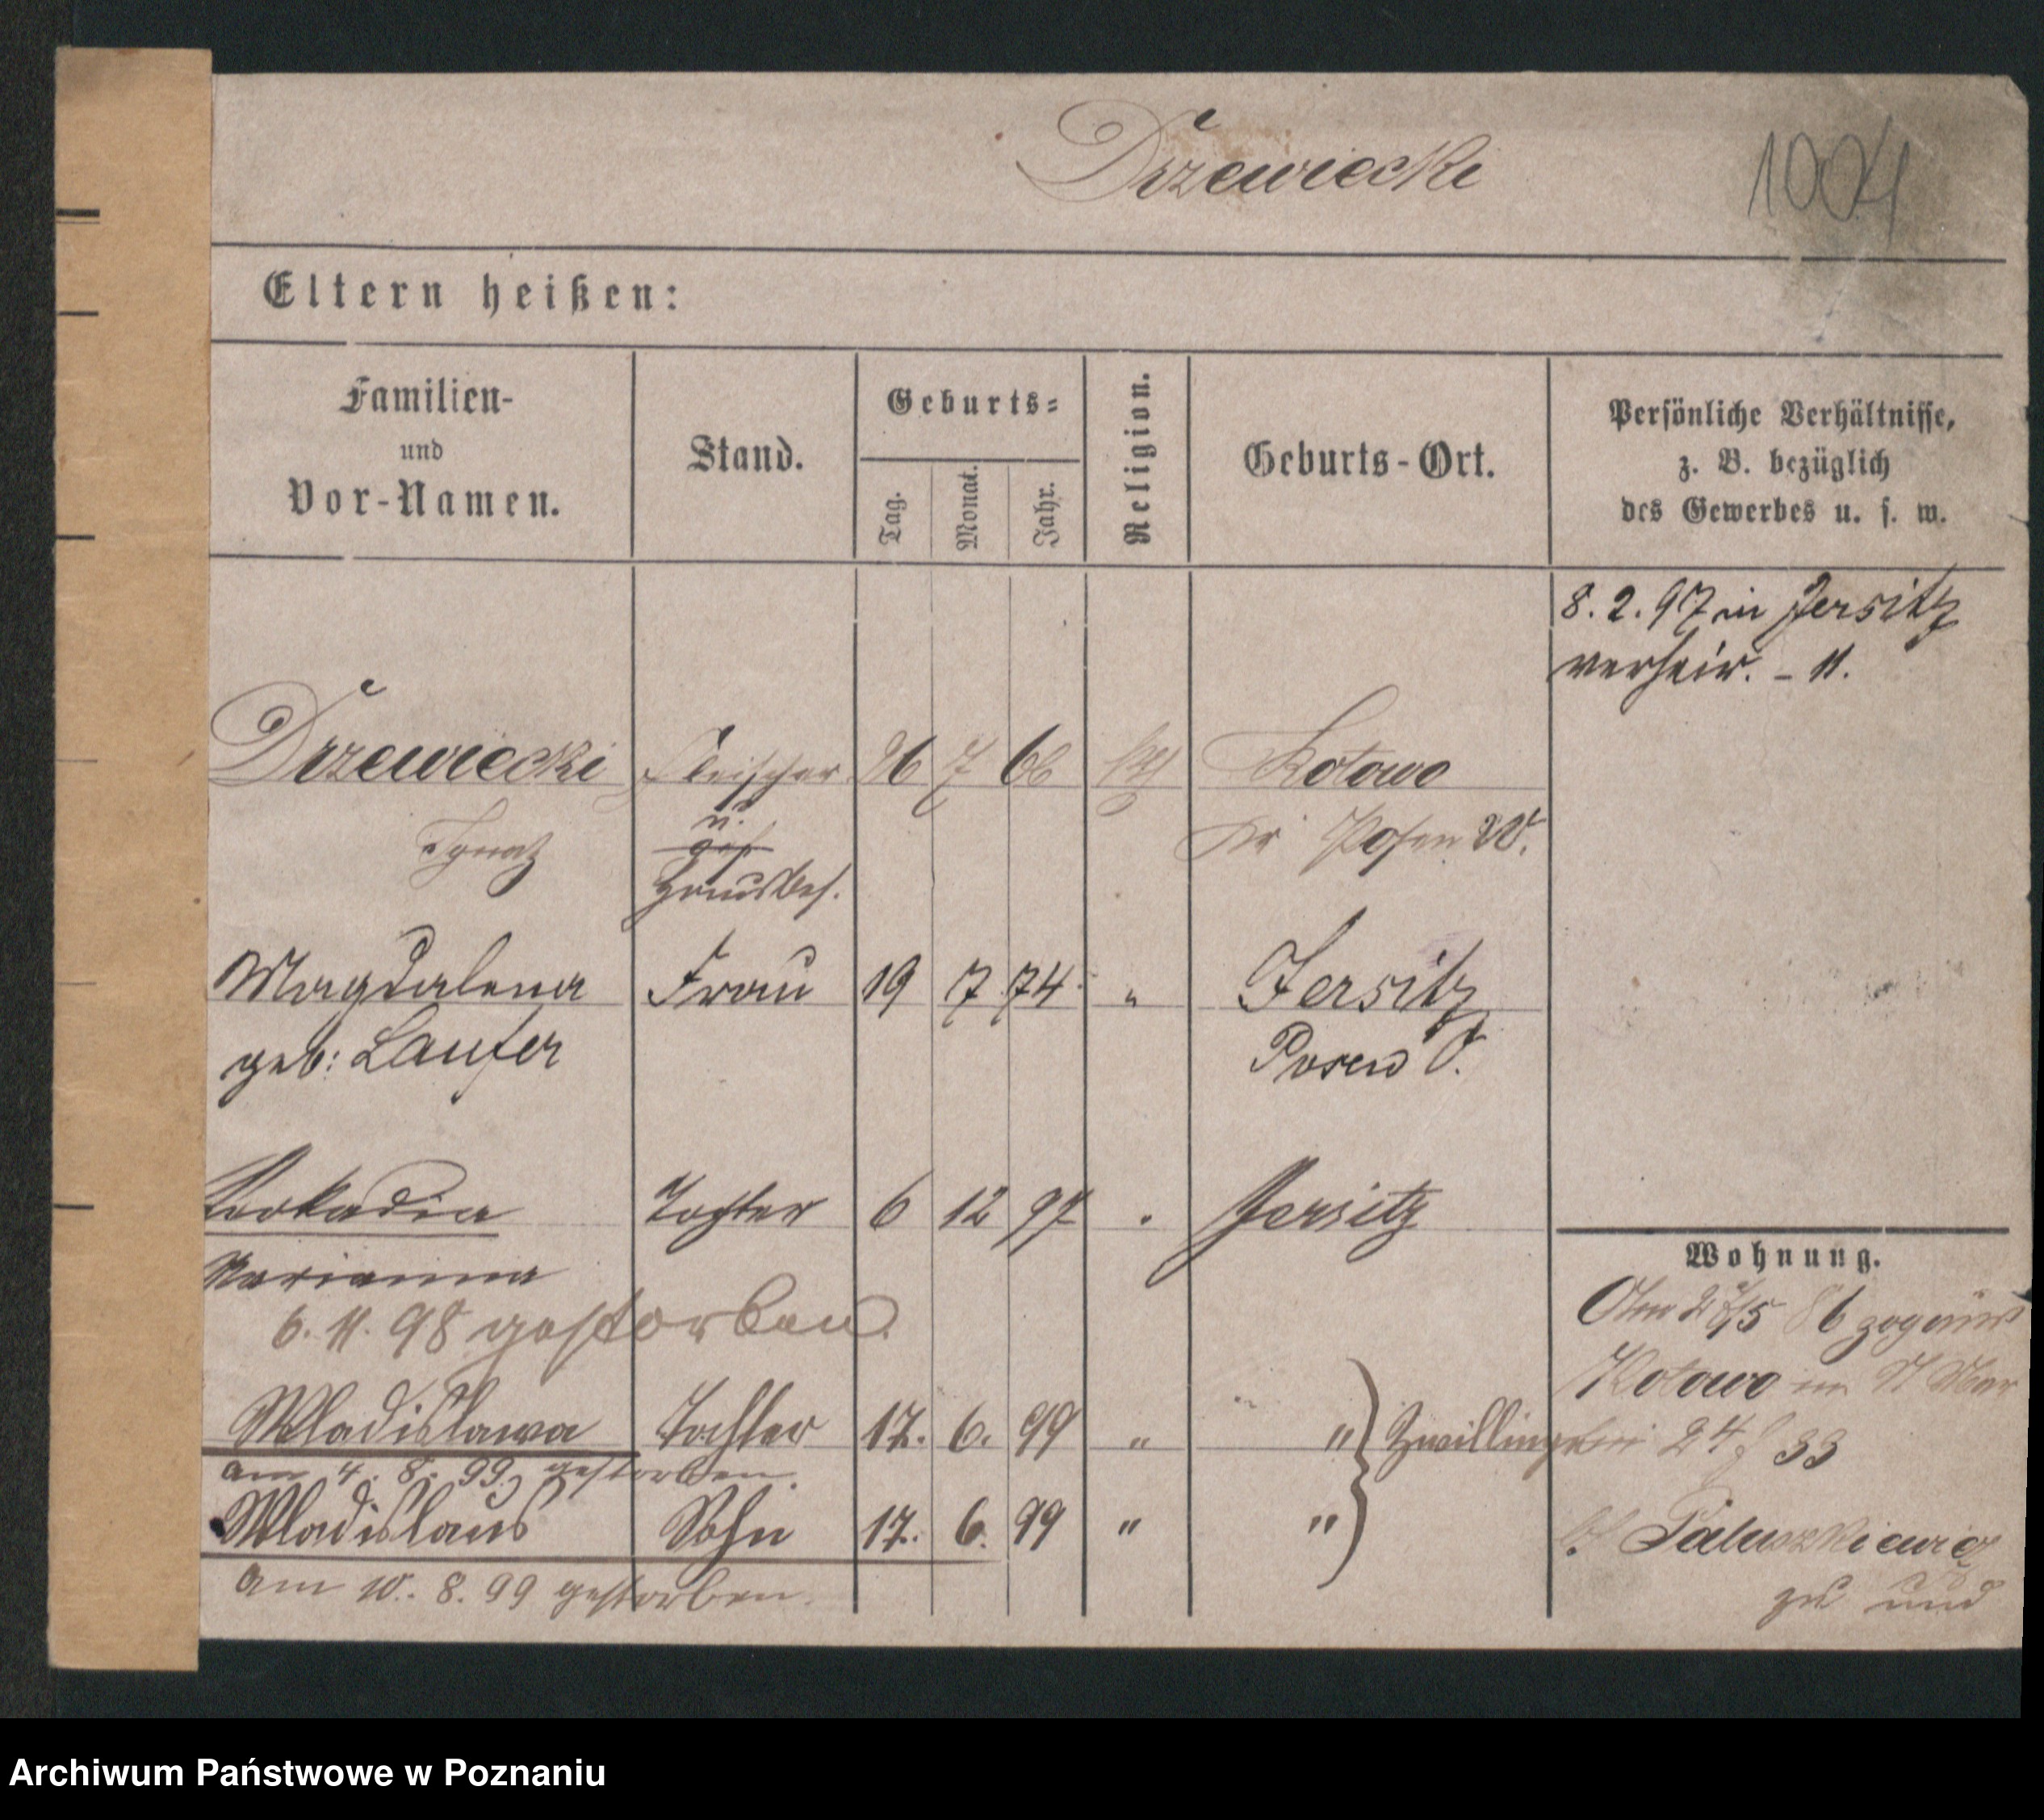 Drzewiecki 1004
Eltern heißen:
Familien-
und
Vor-Namen.
Stand.
Geburts-
Tag.
Monat.
Jahr.
Religion.
Geburts-Ort.
Persönliche Verhältnisse,
z. B. bezüglich
des Gewerbes u. s. w.
8. 2. 97 in Jersitz
verheir. - 11.
Drzewiecki Fleischer 26 7 66 Kotowo
Ignatz u. Kr Posen W.
Hausbes.
Magdalena Frau 19 7 74 " Jersitz
geb: Laufer Posen O.
Leokadia Tochter 6 12 97 " Jersitz
Marianna
6. 11. 98 gestorben
Wladislawa Tochter 17. 6. 99 " " } Zwillinge
am 4. 8. 99. gestorben.
Wladislaus Sohn 17. 6. 99 " "
am 10. 8. 99 gestorben.
Wohnung.
Am 27/5 86 zog aus
Kotowo
24 33
b/ Paluszkiewicz
zu und
Archiwum Państwowe w Poznaniu